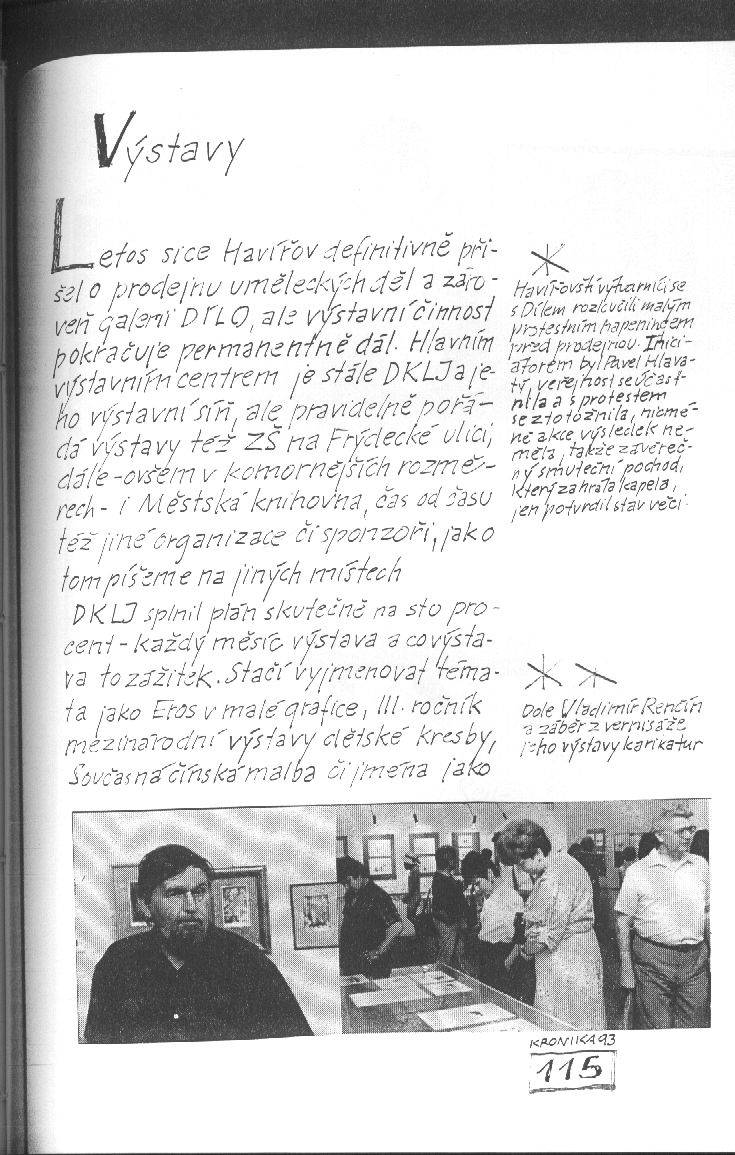 Výstavy
Letos sice Havířov definitivně při-
šel o prodejnu uměleckých děl a záro-
veň galerii DÍLO, ale výstavní činnost
pokračuje permanentně dál. Hlavním
výstavním centrem je stále DKLJ a je-
ho výstavní síň, ale pravidelně pořá-
dá výstavy též ZŠ na Frýdecké ulici,
dále - ovšem v komornějších rozmě-
rech - i Městská knihovna, čas od času
též jiné organizace či sponzoři, jako
tom píšeme na jiných místech
DKLJ splnil plán skutečně na sto pro-
cent - každý měsíc výstava a co výsta-
va to zážitek. Stačí vyjmenovat téma-
ta jako Eros v malé grafice, III. ročník
mezinárodní výstavy dětské kresby,
Současná čínská malba či jména jako
Havířovští výtvarníci se
s Dílem rozloučili malým
protestním hapeningem
před prodejnou. Inici-
átorem byl Pavel Hlava-
tý, veřejnost se účast-
nila a s protestem
se ztotožnila, nicmé-
ně akce výsledek ne-
měla, takže závěreč-
ný smuteční pochod,
který zahrála kapela,
jen potvrdil stav věcí.
Dole Vladimír Renčín
a záběr z vernisáže
jeho výstavy karikatur
KRONIKA 93
115